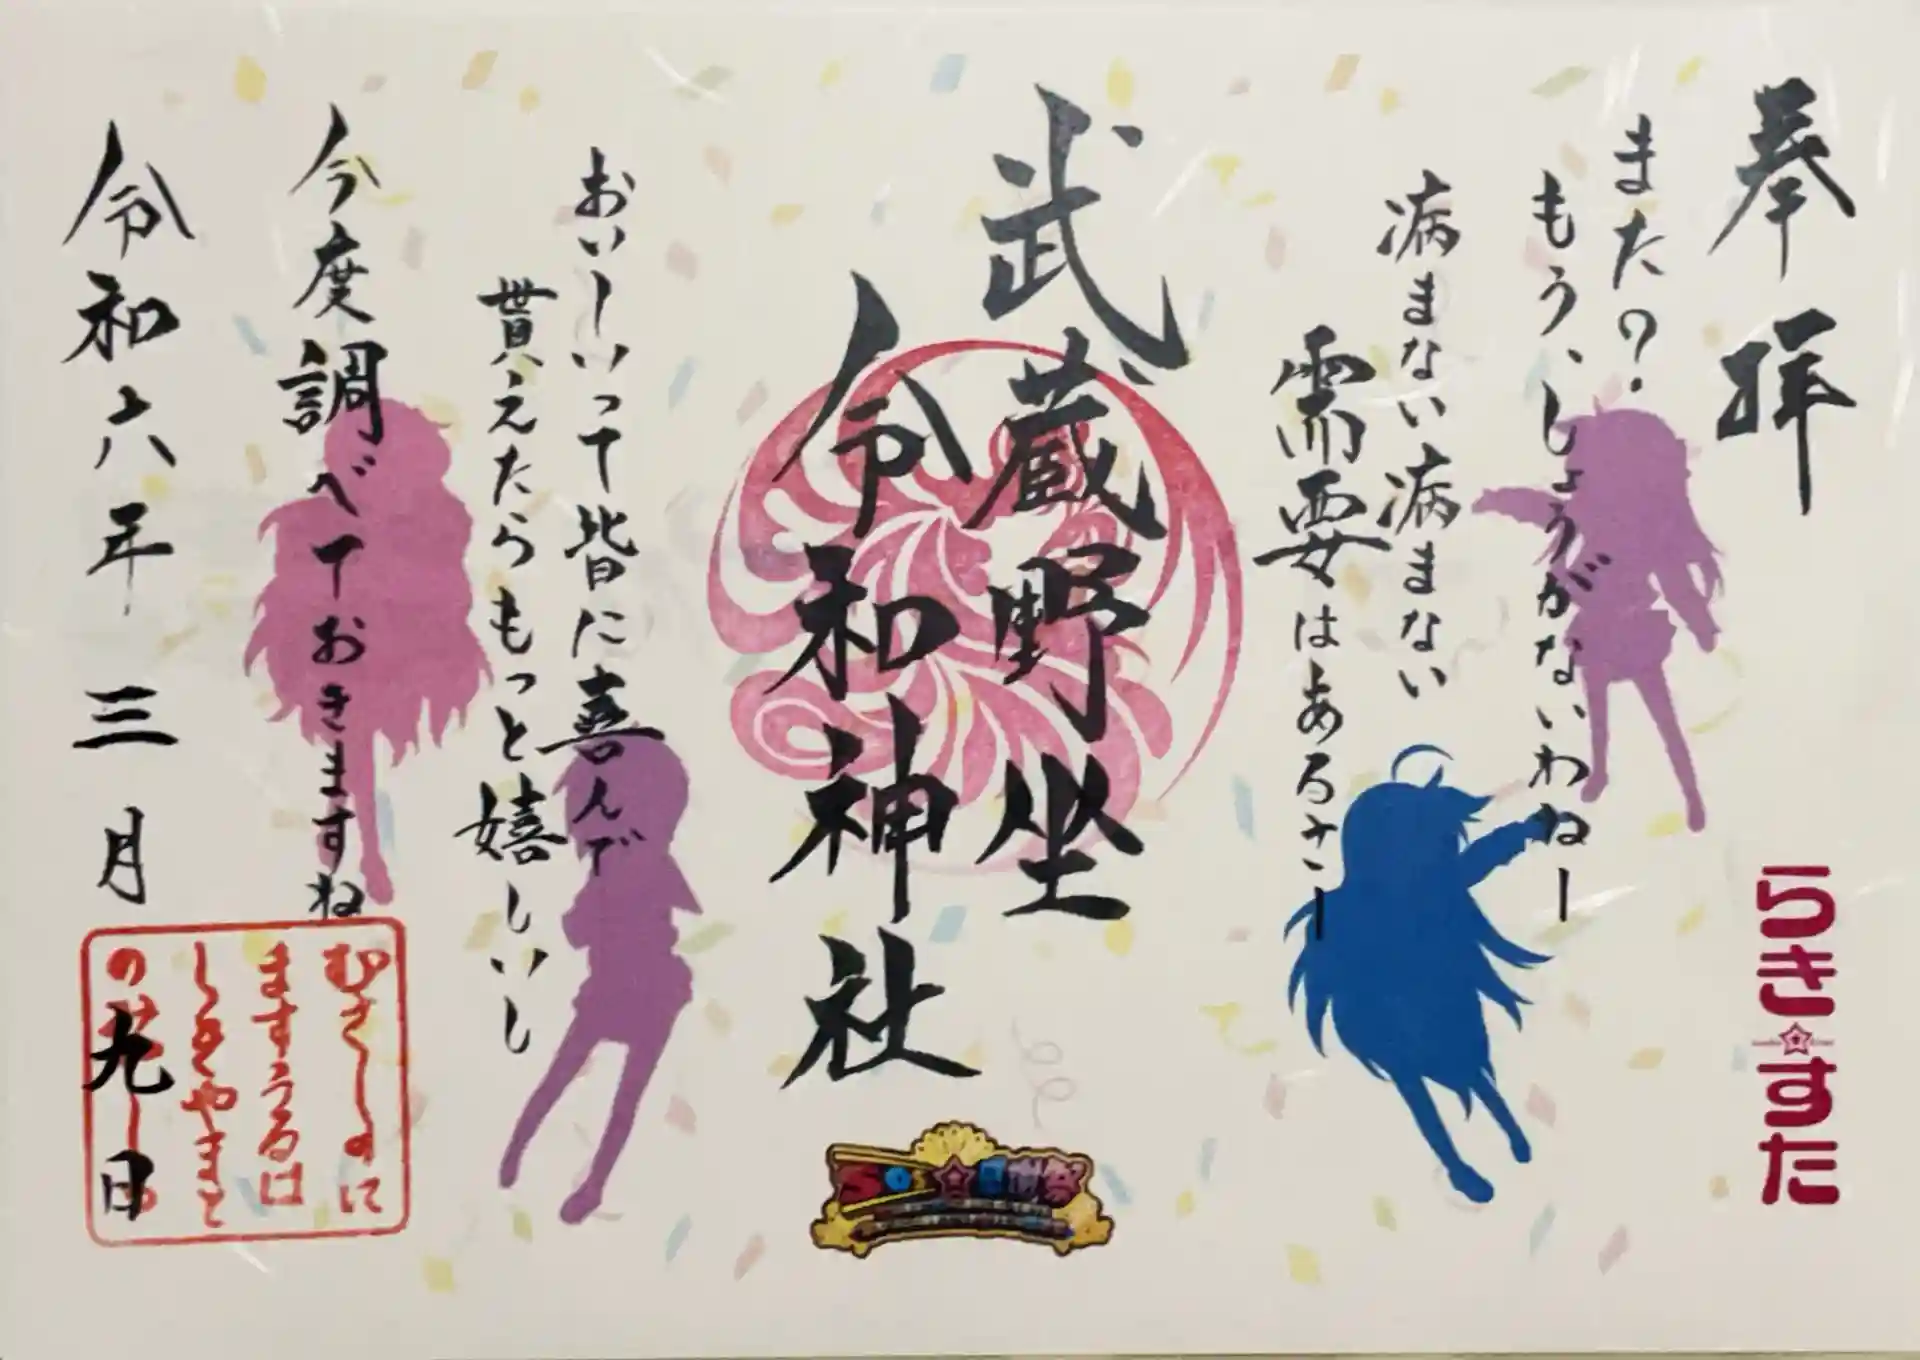 奉拝
らき☆すた
また?
もう、しょうがないわねー
病まない病まない
需要はあるさー
武蔵野坐
令和神社
おいしいって皆に喜んで
貰えたらもっと嬉しいし
今度調べておきますね
令和六年三月九日
むさしのに
ますうるは
しきやまと